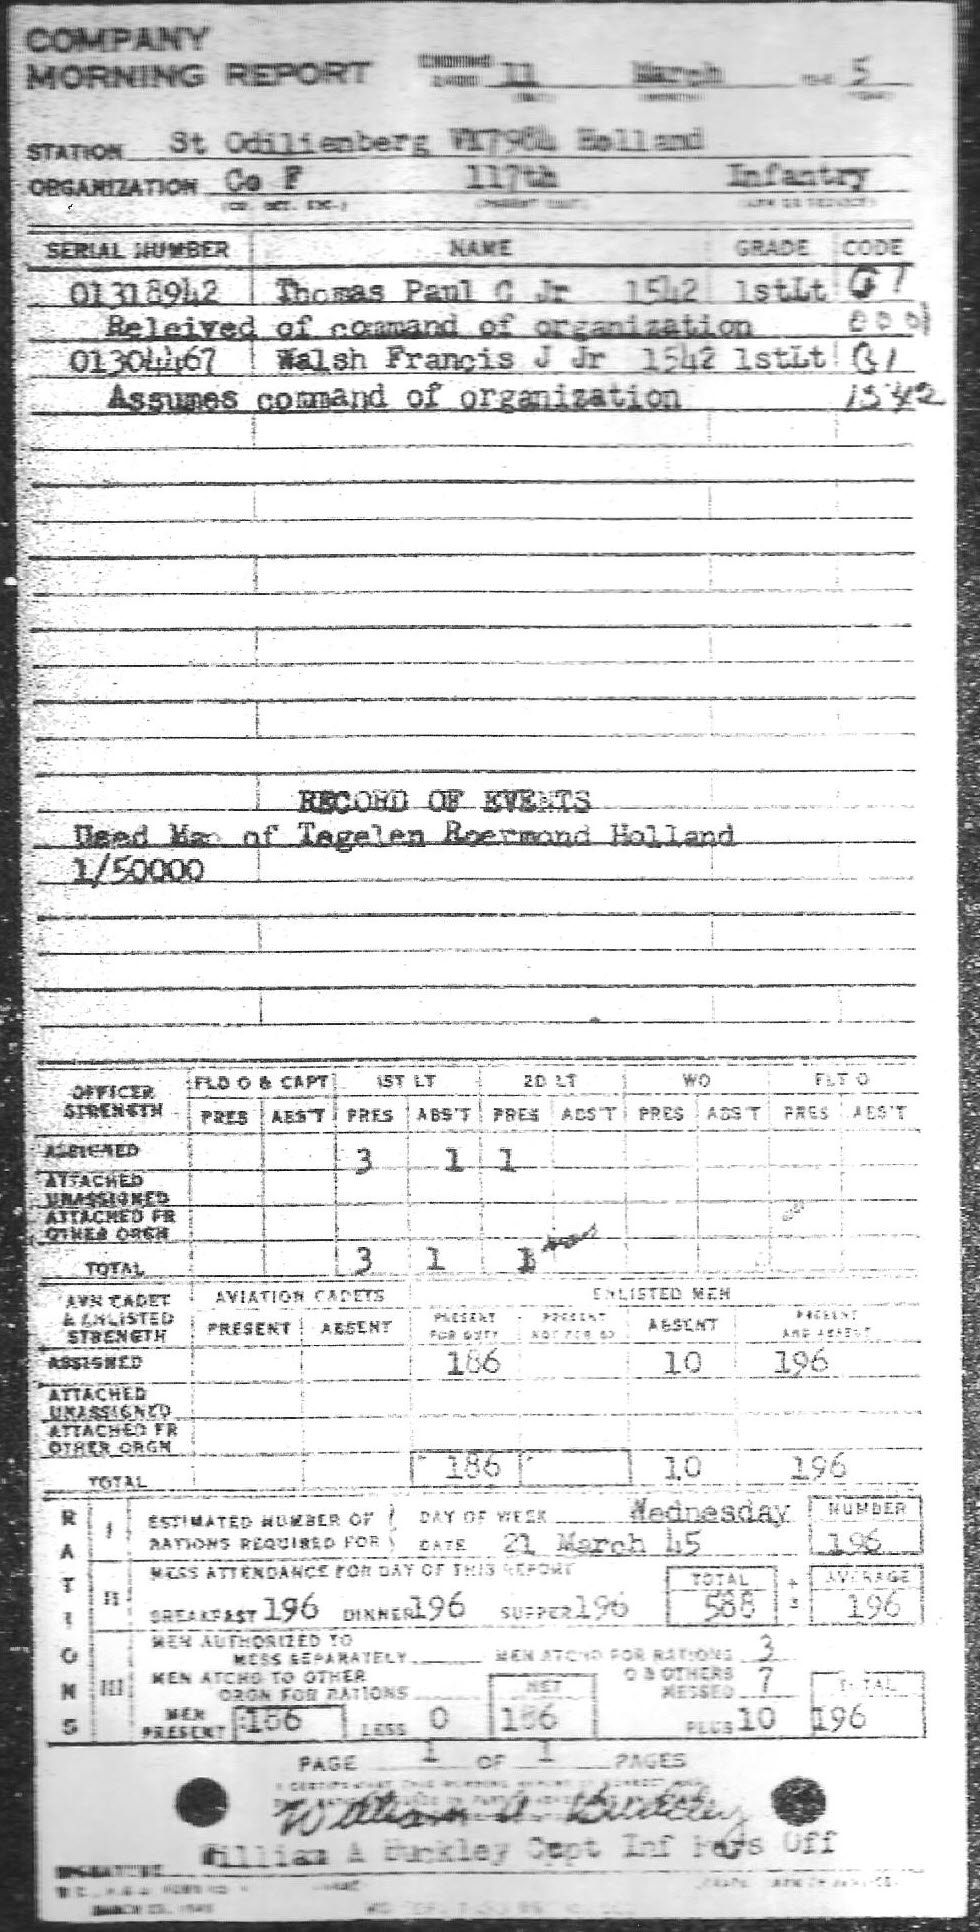 COMPANY
MORNING REPORT ENDING 11 March 5
STATION St Odilienberg VK7984 Holland
ORGANIZATION Co F 117th Infantry
SERIAL NUMBER NAME GRADE CODE
01318942 Thomas Paul C Jr 1542 1stLt
Releived of command of organization
01304467 Walsh Francis J Jr 1542 1stLt
Assumes command of organization 1542
RECORD OF EVENTS
Used Map of Tegelen Roermond Holland
1/50000
OFFICER STRENGTH FLD O & CAPT 1ST LT 2D LT WO FLT O
PRES ABS'T PRES ABS'T PRES ABS'T PRES ABS'T PRES ABS'T
ASSIGNED 3 1 1
ATTACHED UNASSIGNED
ATTACHED FR OTHER ORGN
TOTAL 3 1 1
AVN CADET & ENLISTED STRENGTH AVIATION CADETS ENLISTED MEN
PRESENT ABSENT PRESENT FOR DUTY PRESENT NOT FOR DY ABSENT PRESENT AND ABSENT
ASSIGNED 186 10 196
ATTACHED UNASSIGNED
ATTACHED FR OTHER ORGN
TOTAL 186 10 196
RATIONS
I ESTIMATED NUMBER OF RATIONS REQUIRED FOR DAY OF WEEK Wednesday NUMBER
DATE 21 March 45 196
II MESS ATTENDANCE FOR DAY OF THIS REPORT TOTAL AVERAGE
BREAKFAST 196 DINNER 196 SUPPER 196 588 ÷ 3 196
III MEN AUTHORIZED TO MESS SEPARATELY MEN ATCHD FOR RATIONS 3
MEN ATCHD TO OTHER ORGN FOR RATIONS NET O & OTHERS MESSED 7 TOTAL
MEN PRESENT 186 LESS 0 186 PLUS 10 196
PAGE 1 OF 1 PAGES
William A Buckley
William A Buckley Capt Inf Pers Off
SIGNATURE